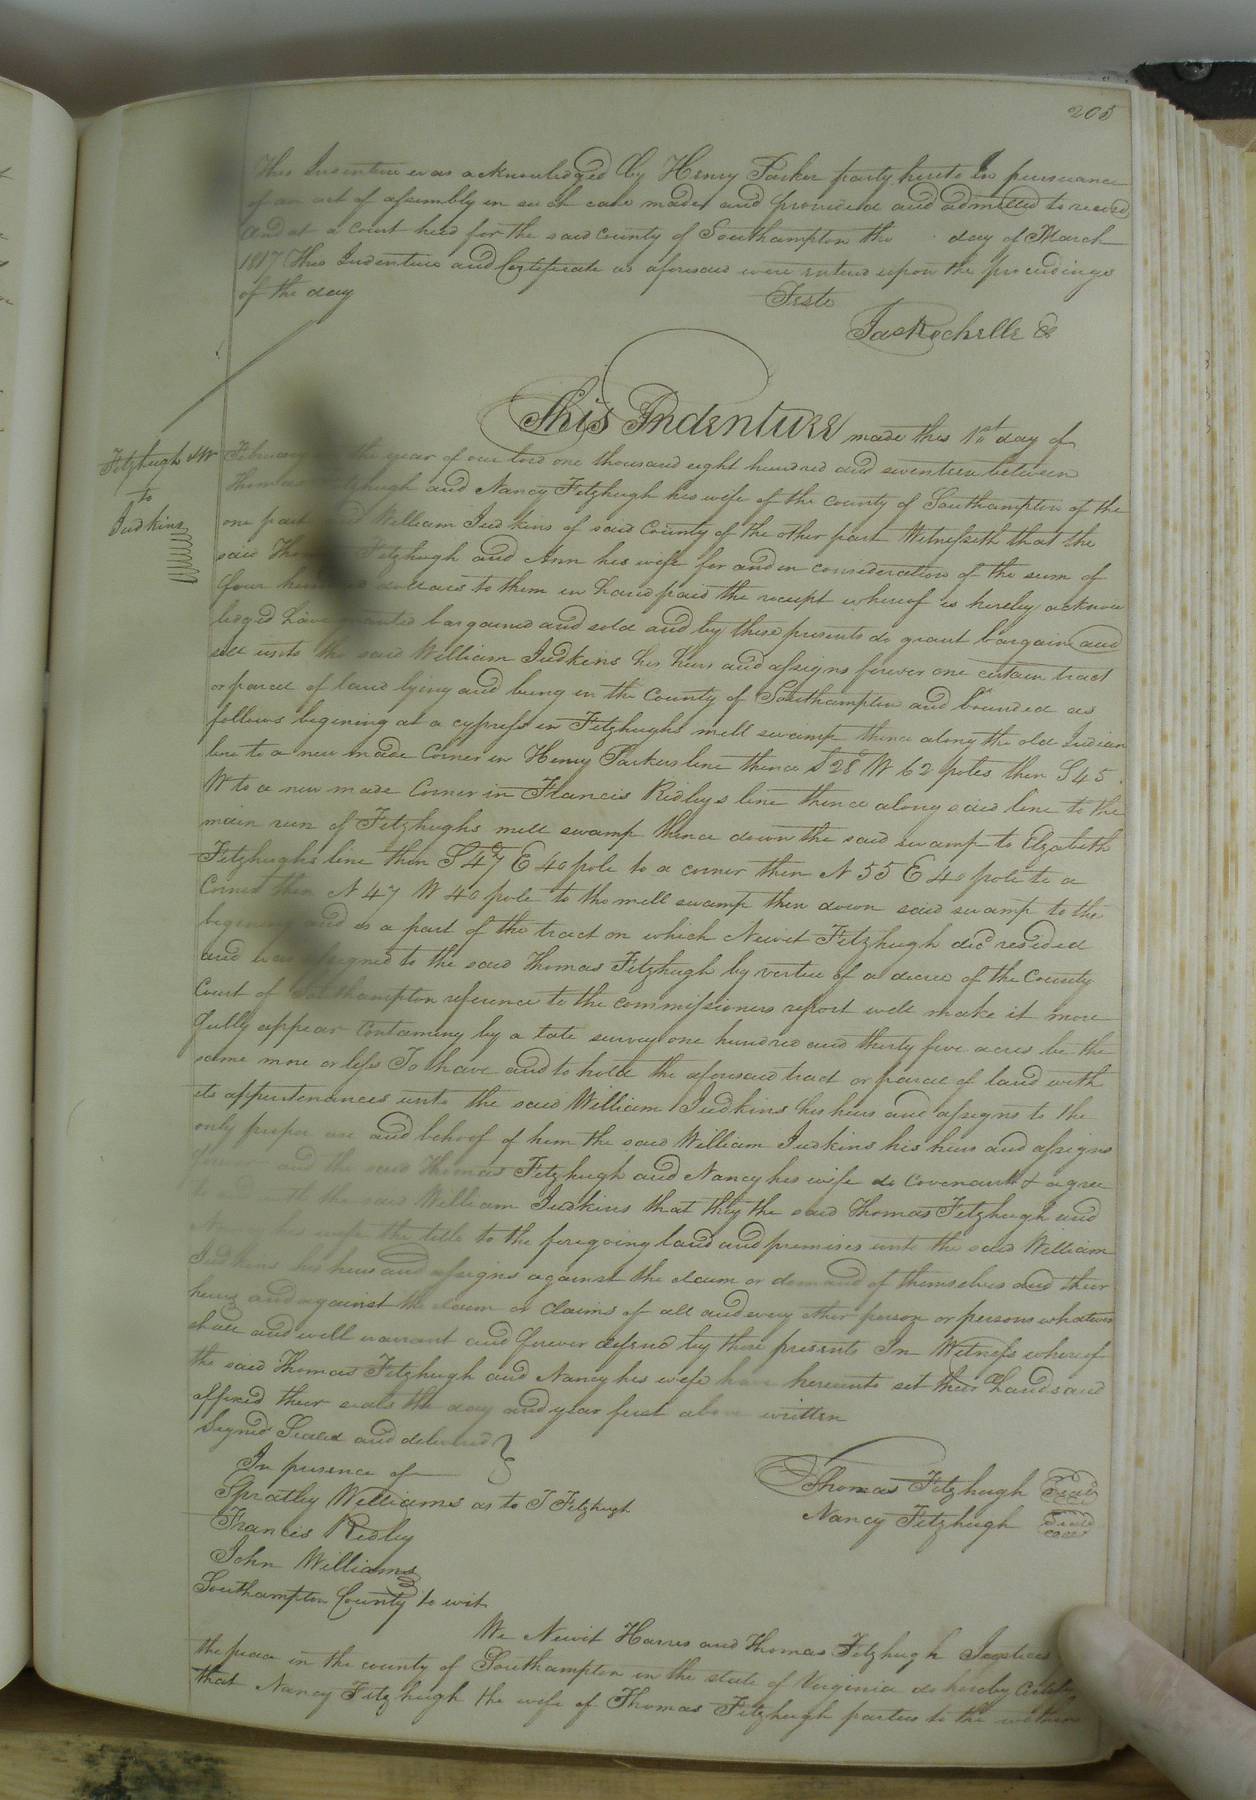 205
This Indenture was acknowledged by Henry Parker party hereto In pursuance
of an act of assembly in such case made and provided and admitted to record
And at a court held for the said county of Southampton the day of March
1817 This Indenture and Certificate as aforesaid were entered upon the proceedings
of the day Teste
Jas Rochelle
This Indenture made this 1st day of
Fitzhugh &W
to
Judkins
February the year of our lord one thousand eight hundred and seventeen between
Thomas Fitzhugh and Nancy Fitzhugh his wife of the County of Southampton of the
one part and William Judkins of said County of the other part Witnesseth that the
said Thomas Fitzhugh and Ann his wife for and in consideration of the sum of
four hundred dollars to them in hand paid the receipt whereof is hereby acknow
ledged have granted bargained and sold and by these presents do grant bargain and
sell unto the said William Judkins his heirs and assigns forever one certain tract
or parcel of land lying and being in the County of Southampton and bounded as
follows begining at a cypress in Fitzhughs mill swamp thence along the old Indian
line to a new made Corner in Henry Parkers line thence S 28 W 62 poles then S 45
W to a new made Corner in Francis Ridleys line thence along said line to the
main run of Fitzhughs mill swamp thence down the said swamp to Elzabeth
Fitzhughs line then S 47 E 40 pole to a corner then N 55 E 40 pole to a
Corner then N 47 W 40 pole to the mill swamp then down said swamp to the
begining and is a part of the tract on which Newit Fitzhugh decd resided
and was assigned to the said Thomas Fitzhugh by vertue of a decree of the County
Court of Southampton reference to the commissioners report will make it more
fully appear Containing by a late survey one hundred and thirty five acres be the
same more or less To have and to hold the aforesaid tract or parcel of land with
its appurtenances unto the said William Judkins his heirs and assigns to the
only proper use and behoof of him the said William Judkins his heirs and assigns
forever and the said Thomas Fitzhugh and Nancy his wife do Covenant & agree
to and with the said William Judkins that they the said Thomas Fitzhugh and
Nancy his wife the title to the foregoing land and premises unto the said William
Judkins his heirs and assigns against the claim or demand of themselves and their
heirs and against the claim or claims of all and every other person or persons whatever
shall and will warrant and forever defend by these presents In Witness whereof
the said Thomas Fitzhugh and Nancy his wife have hereunto set their hands and
affixed their seals the day and year first above written
Signed Sealed and delivered
In presence of
Thomas Fitzhugh Seal
Spratley Williams as to T Fitzhugh
Nancy Fitzhugh Seal
Francis Ridley
John Williams
Southampton County to wit
We Newit Harris and Thomas Fitzhugh Justices
the peace in the county of Southampton in the state of Virginia do hereby Certify
that Nancy Fitzhugh the wife of Thomas Fitzhugh parties to the within